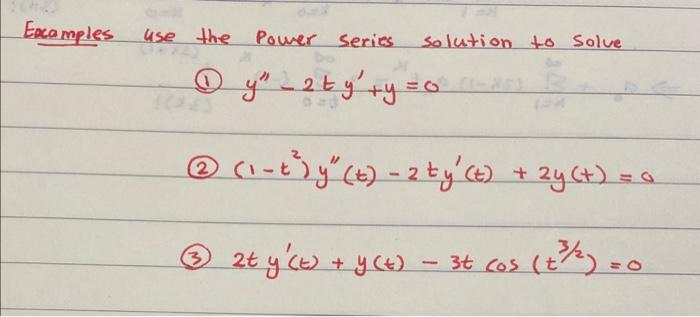 Examples use the Power series solution to solve
① y" - 2ty' + y = 0
② (1-t²)y"(t) - 2ty'(t) + 2y(t) = 0
③ 2ty'(t) + y(t) - 3t cos(t^{3/2}) = 0